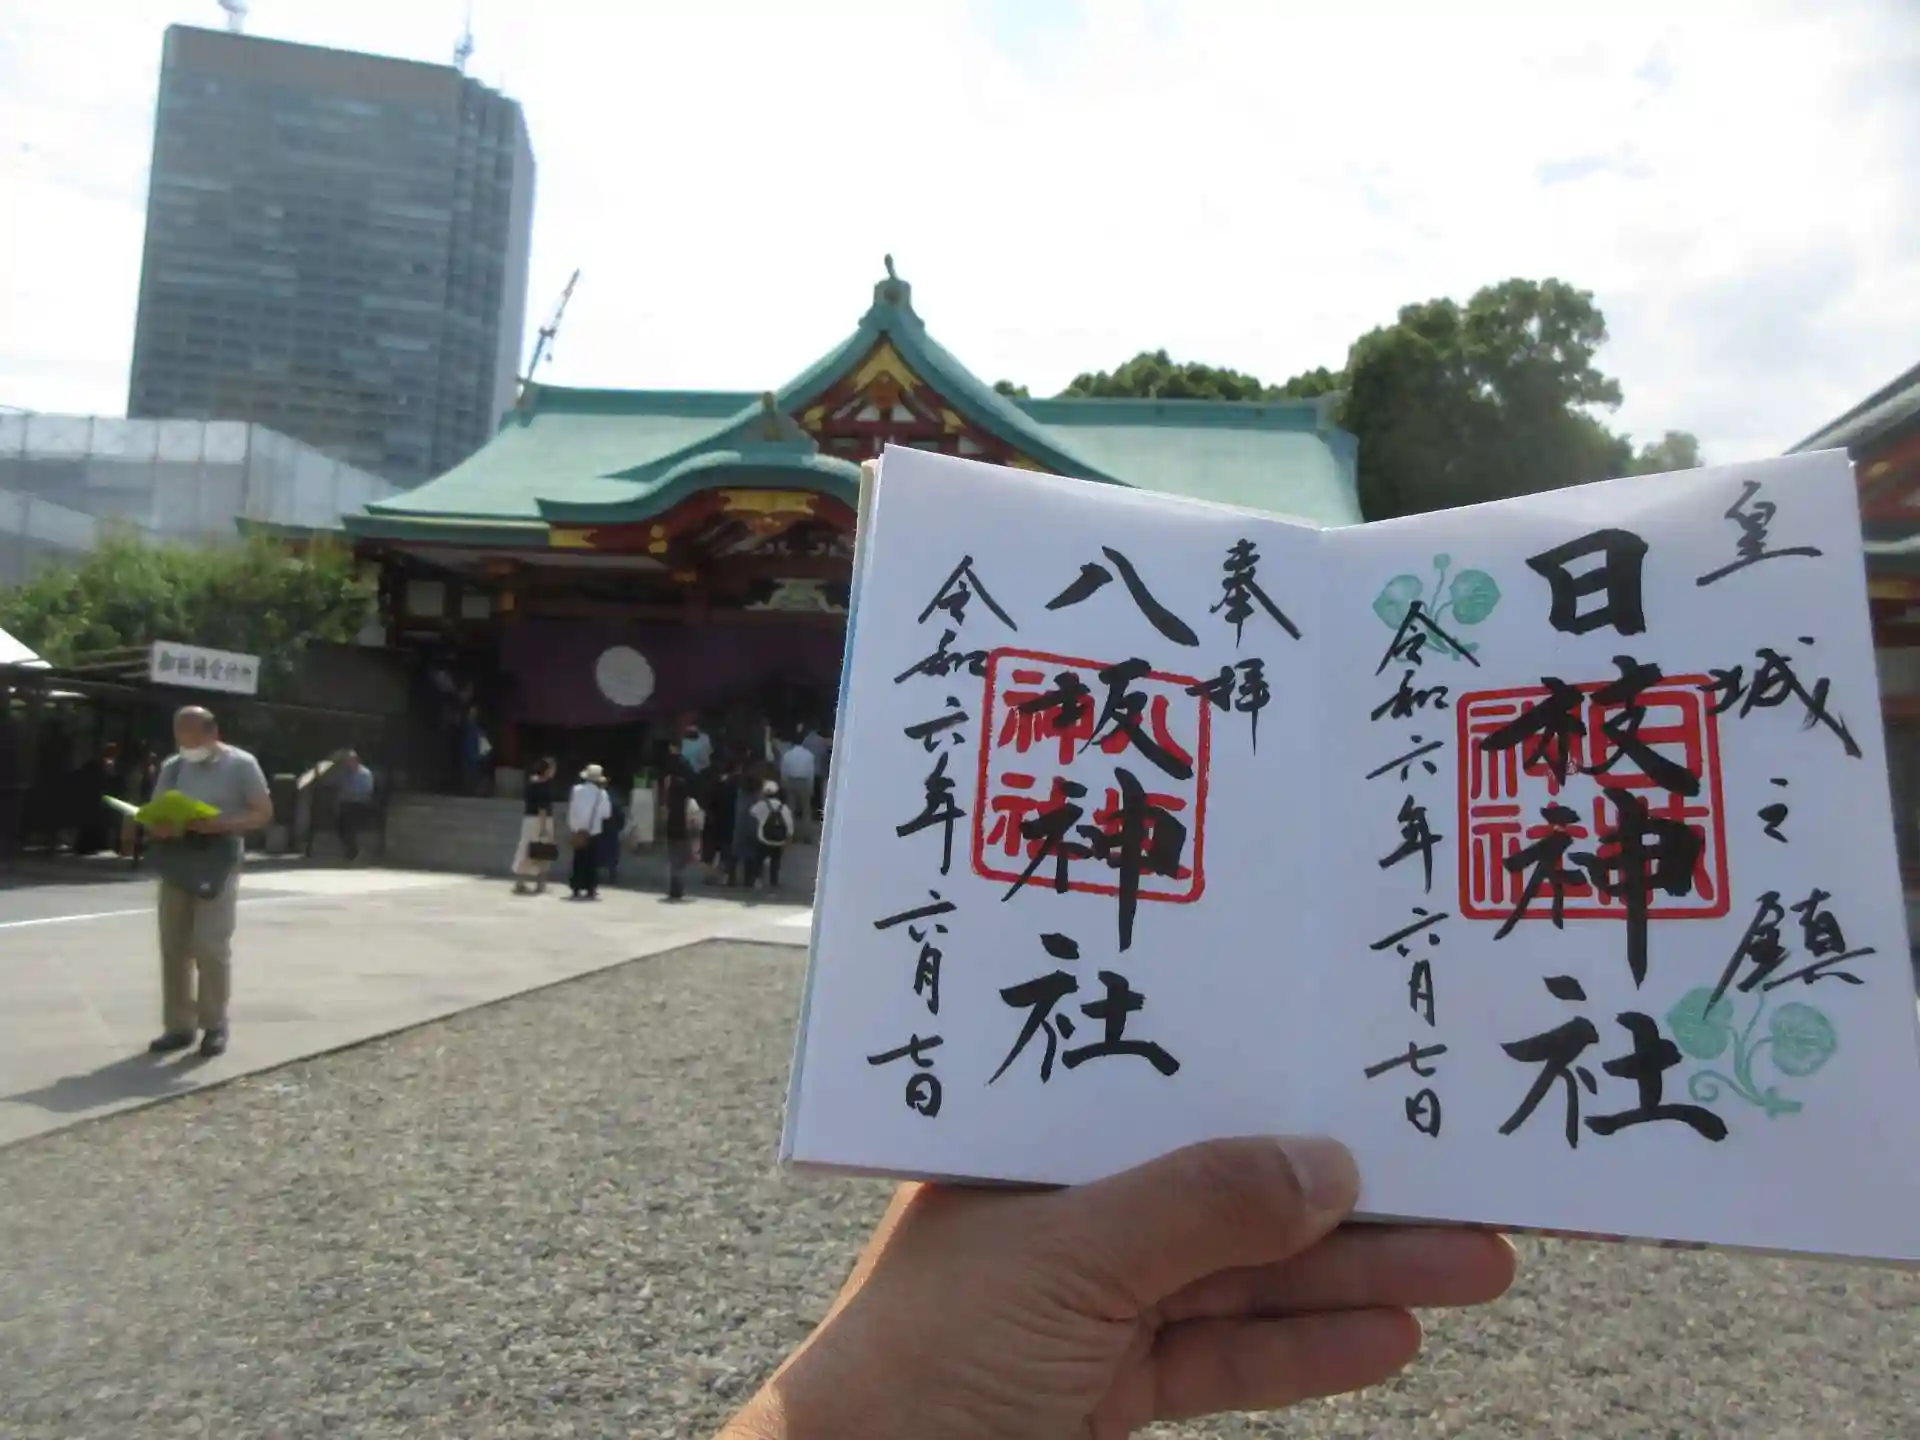 皇城之鎮
日枝神社
日枝神社
令和六年六月七日
奉拝
八坂神社
八坂神社
令和六年六月七日